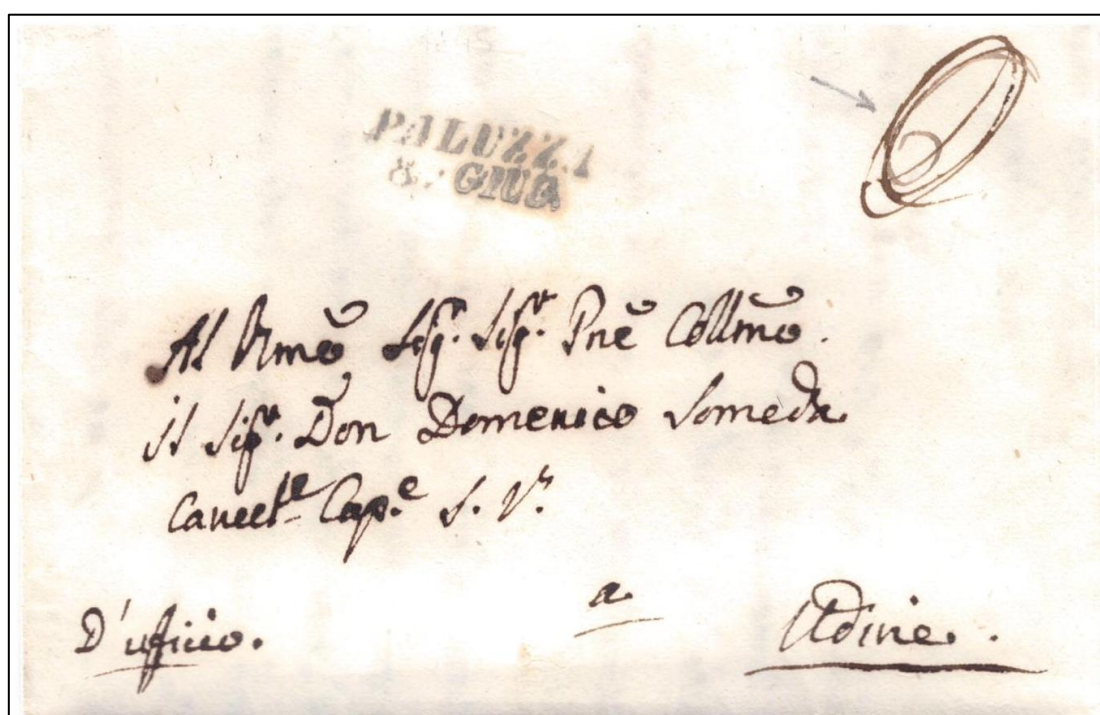 PALUZZA
8. GIUG.
Al Rmõ Sigr. Sigr. Pñe Collmõ.
il Sigr. Don Domenico Someda
Cancele Cape
D'ufficio.
a
Udine.